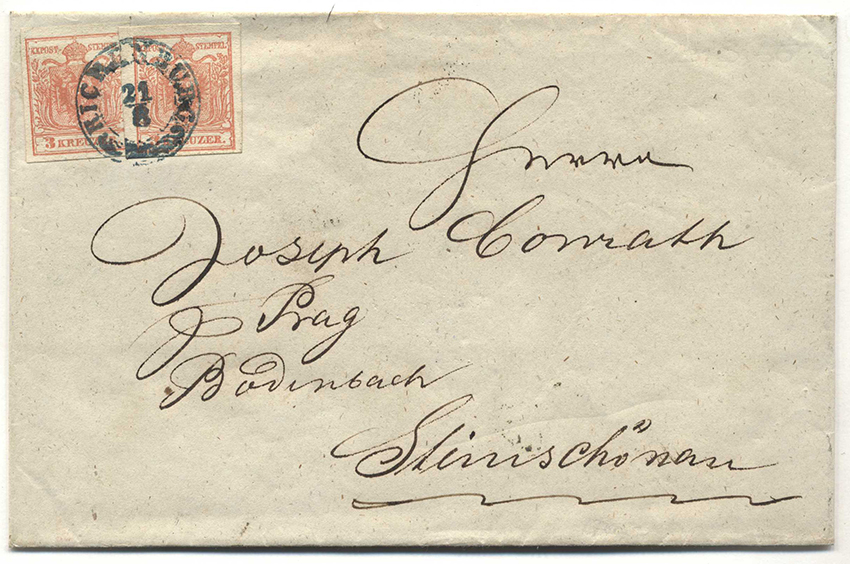 KKPOST-STEMPEL KKPOST-STEMPEL
REICHENBURG
21
8
3 KREUZER.
Herrn
Joseph Conrath
Prag
Bodenbach
Steinschönau